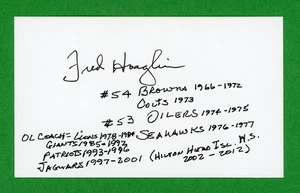 Fred Hoaglin
#54 BROWNS 1966-1972
COLTS 1973
#53 OILERS 1974-1975
SEAHAWKS 1976-1977
OL COACH - LIONS 1978-1984
GIANTS 1985-1992
PATRIOTS 1993-1996
JAGUARS 1997-2001 (HILTON HEAD ISL. H.S.
2002-2012)